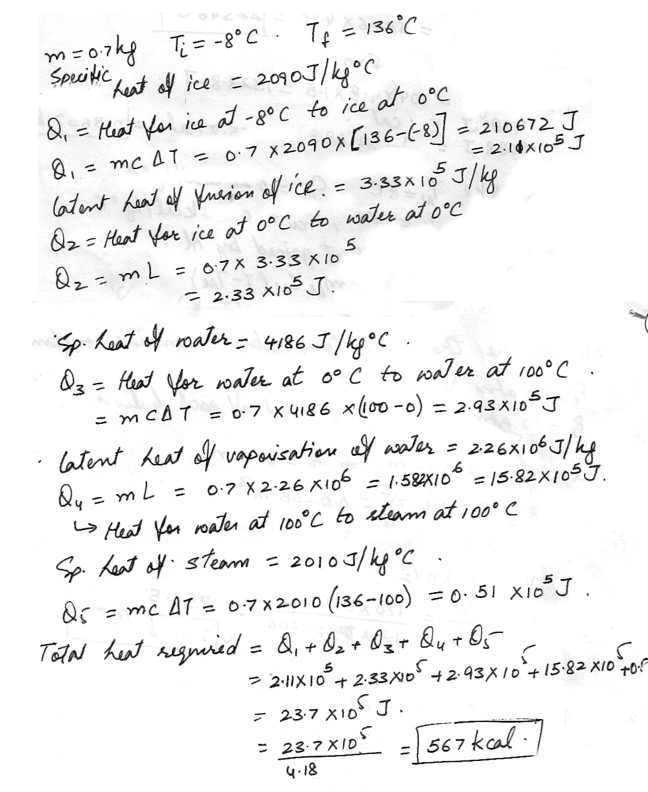 m = 0.7kg Ti = -8°C . Tf = 136°C
Specific heat of ice = 2090J/kg°C
Q1 = Heat for ice at -8°C to ice at 0°C
Q1 = mcΔT = 0.7 x2090x[136-(-8)] = 210672 J
= 2.10x10^5 J
latent heat of fusion of ice. = 3.33x10^5 J/kg
Q2 = Heat for ice at 0°C to water at 0°C
Q2 = mL = 0.7x 3.33 x10^5
= 2.33 x10^5 J.
Sp. heat of water = 4186 J/kg°C .
Q3 = Heat for water at 0°C to water at 100°C .
= mCΔT = 0.7 x4186 x(100-0) = 2.93x10^5 J
. latent heat of vaporisation of water = 2.26x10^6 J/kg
Q4 = mL = 0.7x2.26 x10^6 = 1.582x10^6 = 15.82x10^5 J.
↳ Heat for water at 100°C to steam at 100°C
Sp. heat of steam = 2010J/kg°C .
Q5 = mc ΔT = 0.7x2010 (136-100) = 0.51 x10^5 J .
Total heat required = Q1 + Q2 + Q3 + Q4 + Q5
= 2.11x10^5 + 2.33x10^5 + 2.93x10^5 + 15.82x10^5 +0.5
= 23.7 x10^5 J .
= 23.7x10^5/4.18 = 567 kcal .